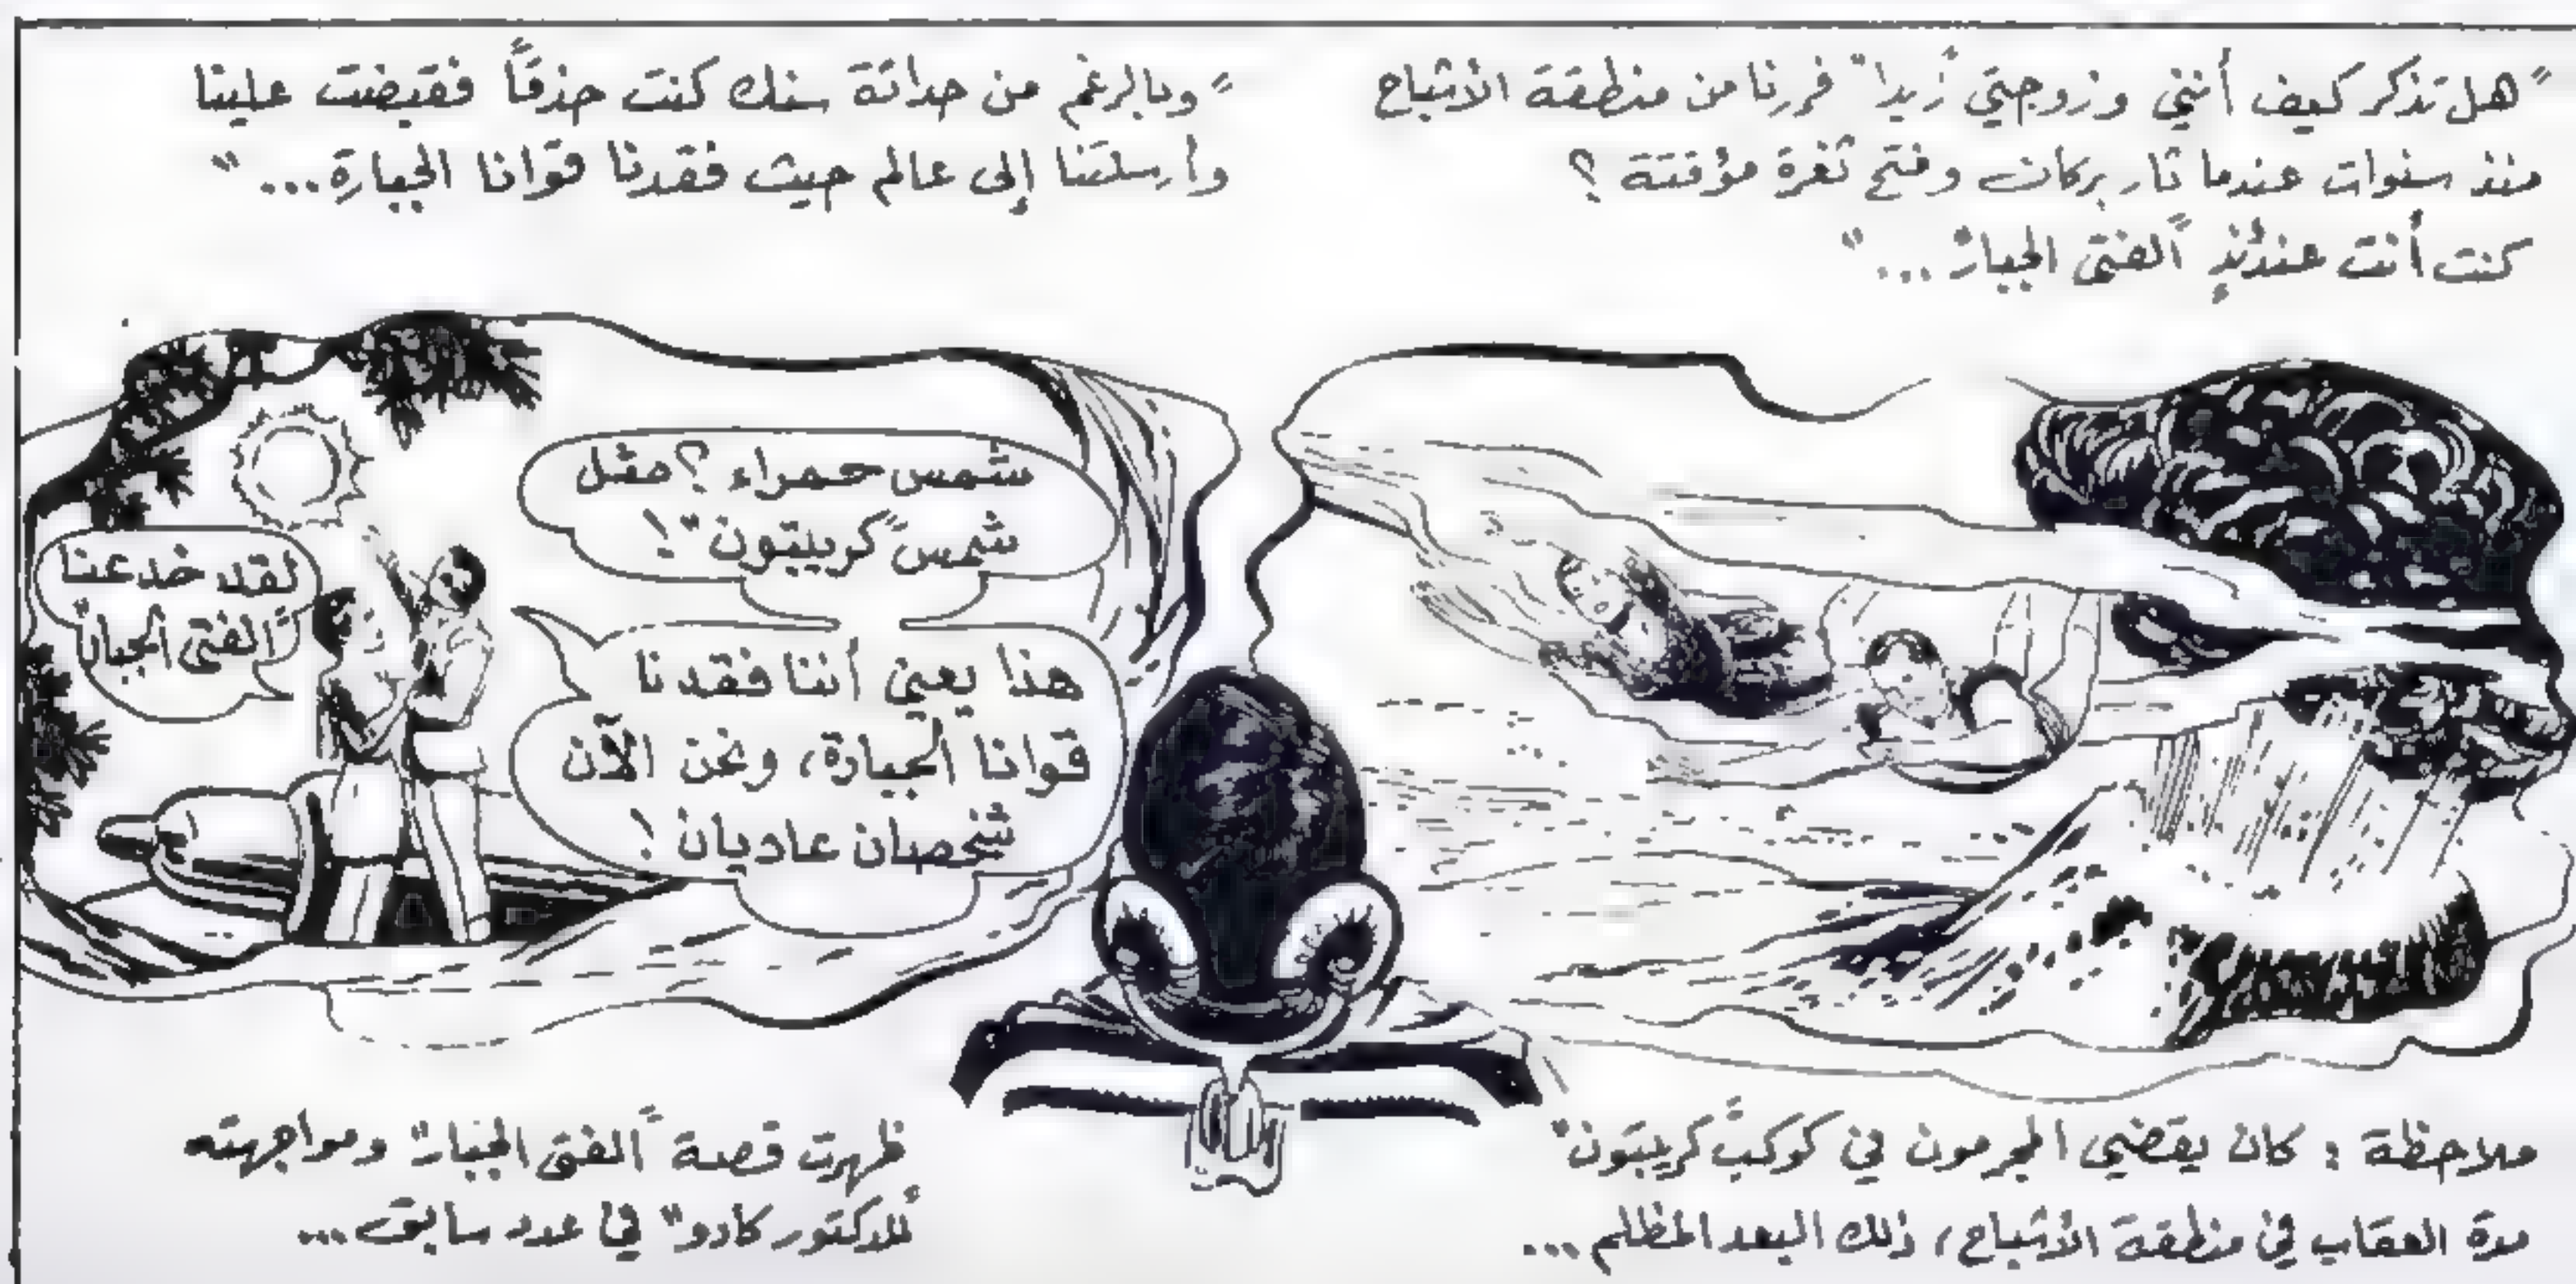 "هل تذكر كيف أنني وزوجتي "زيدا" فررنا من منطقة الأشباح
منذ سنوات عندما ثار بركان وفتح ثغرة مؤقتة ؟
كنت أنت عندئذٍ "الفتى الجبار"..."
"وبالرغم من حداثة سنك كنت حذقاً فقبضت علينا
وأرسلتنا إلى عالم حيث فقدنا قوانا الجبارة..."
شمس حمراء ؟ مثل
شمس "كريبتون"!
هذا يعني أننا فقدنا
قوانا الجبارة، ونحن الآن
شخصان عاديان !
لقد خدعنا
"الفتى الجبار"
ملاحظة : كان يقضي المجرمون في كوكب "كريبتون"
مدة العقاب في منطقة الأشباح، ذلك البعد المظلم...
ظهرت قصة "الفتى الجبار" ومواجهته
"للدكتور كادو" في عدد سابق...